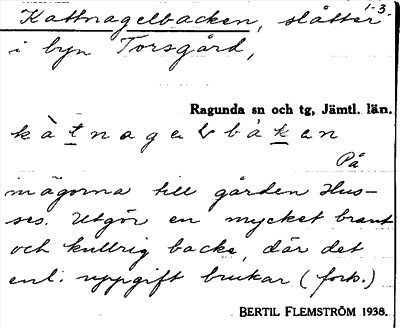 1-3.
Kattnagelbacken, slåtter
i byn Torsgård,
Ragunda sn och tg, Jämtl. län.
På
inägorna till gården Hus-
ses. Utgör en mycket brant
och kullrig backe, där det
enl. uppgift brukar (forts.)
BERTIL FLEMSTRÖM 1938.